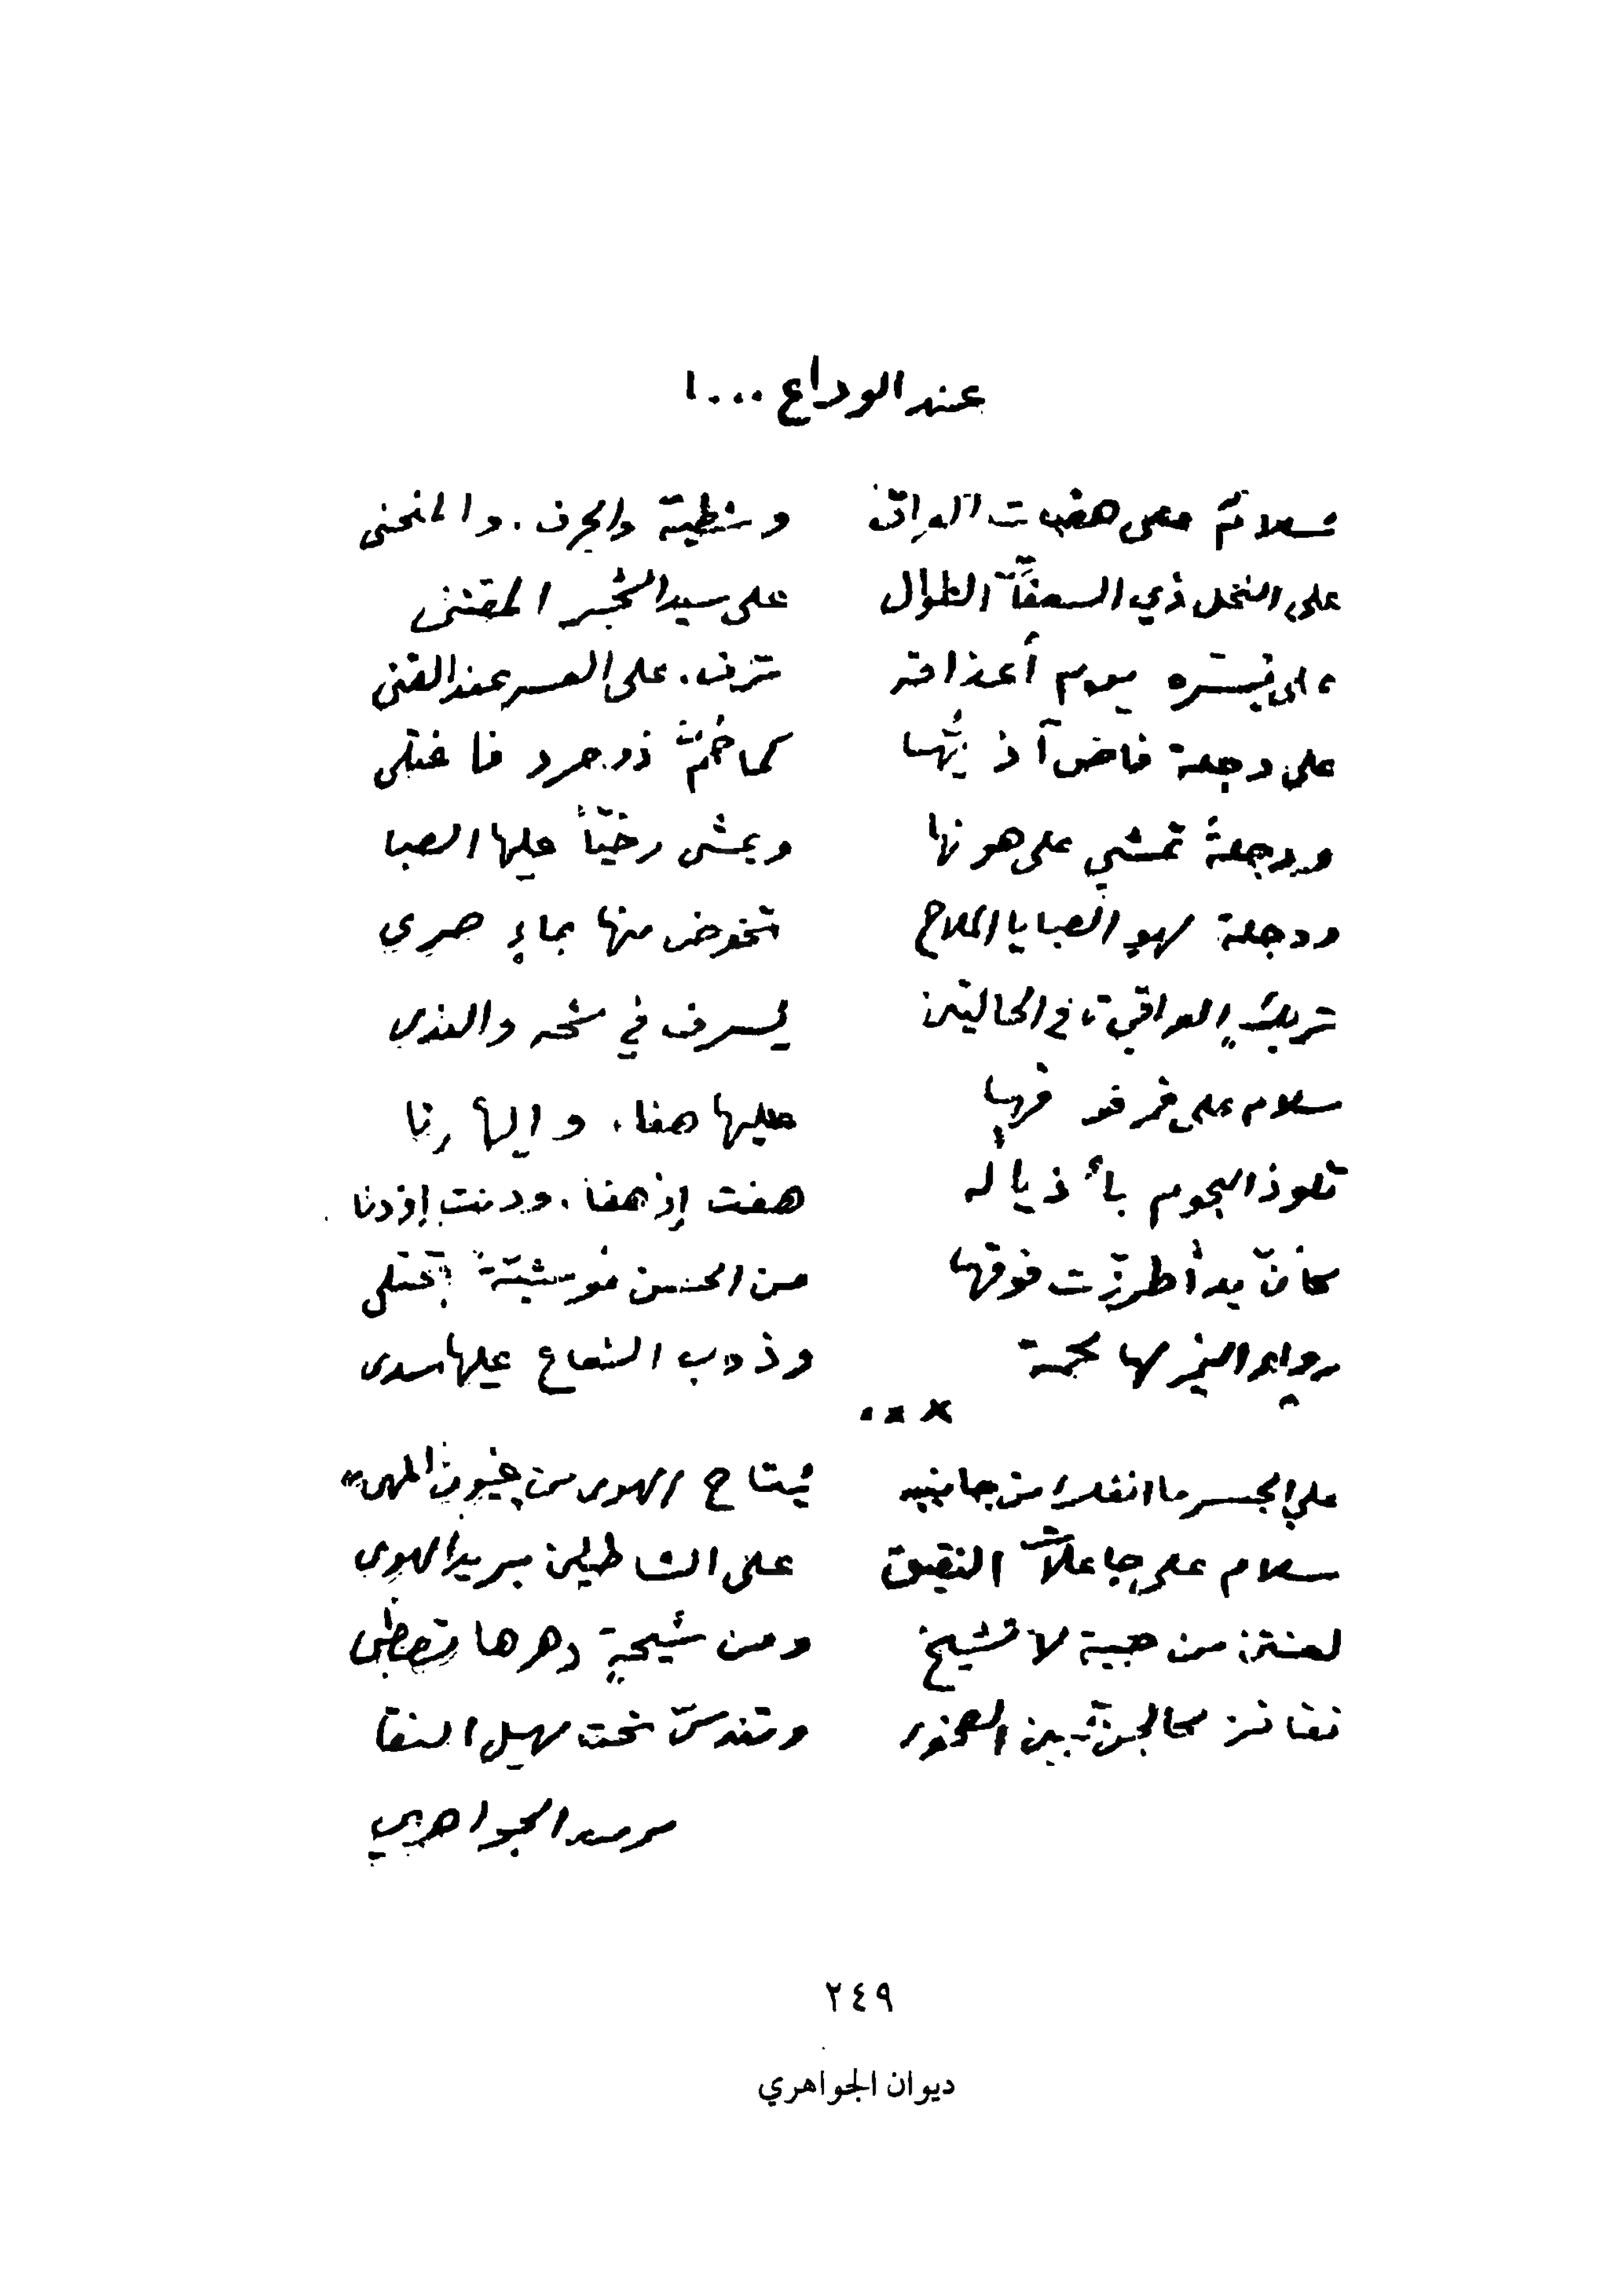 عند الوداع ...!
سلامٌ على هضبات العراق وشطيه والجرف. والمنحنى
على النخل ذي السعفات الطوال على سيد الشجر المقتنى
على يوم أعذاقه ترف. على العسر عند القنى
على دجلة فاض آذيُّها كما خمّ ذو حرد فاغتلى
ودجلةُ تمشي على هونها ويمشي رخيّاً عليها الصبا
ودجلة لهو الصبايا الملاح تخوض منها بماءٍ صرى
تريك العراقي في الحالتين يسرف في شحه والندى
سلام على قمر فوقها عليها هفا. وإليها رنا
تلوذ النجوم بأذياله هفت إذ هفا. ودنت إذ دنا
كأنّ يداً طرزت فوقها من الحسن موشيّةً تجتلى
رواء النمير لها لحمة وذوب الشعاع عليها سدى
* * *
على الجسر ما انفك من جانبيه يُتاح الهوى من عيون المهى
سلام على جاعلات النقيق على الشاطئين بريد الهوى
لعنتن من صبية لا تشيخ ومن شيخةٍ دهرها تصطبى
تقافز كالجنّ بين الصخور وتندسّ تحت مهيل النقا
الجواهري
٢٤٩
ديوان الجواهري